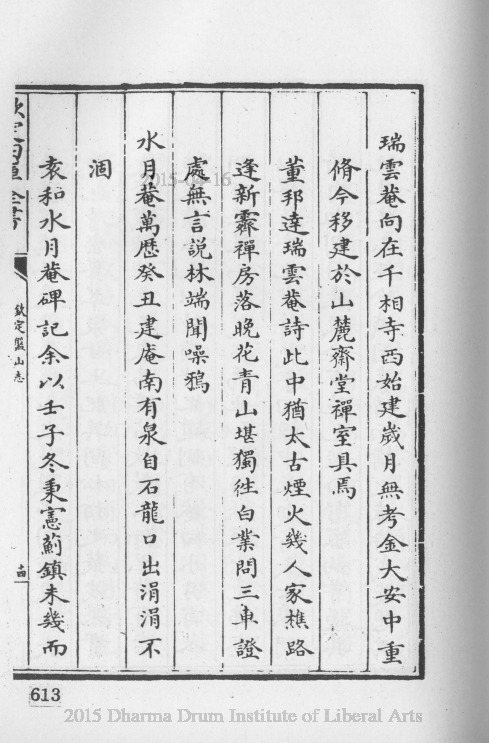 瑞雲菴向在千相寺西始建歲月無考金大安中重
脩今移建於山麓齋堂禪室具焉
董邦達瑞雲菴詩此中猶太古煙火幾人家樵路
逢新霽禪房落晚花青山堪獨徃白業問三車證
處無言說林端聞噪鴉
水月菴萬歷癸丑建庵南有泉自石龍口出涓涓不
涸
袁和水月菴碑記余以壬子冬秉憲薊鎮未幾而
欽定四庫全書
欽定盤山志
十四
613
2015-03-16
2015 Dharma Drum Institute of Liberal Arts